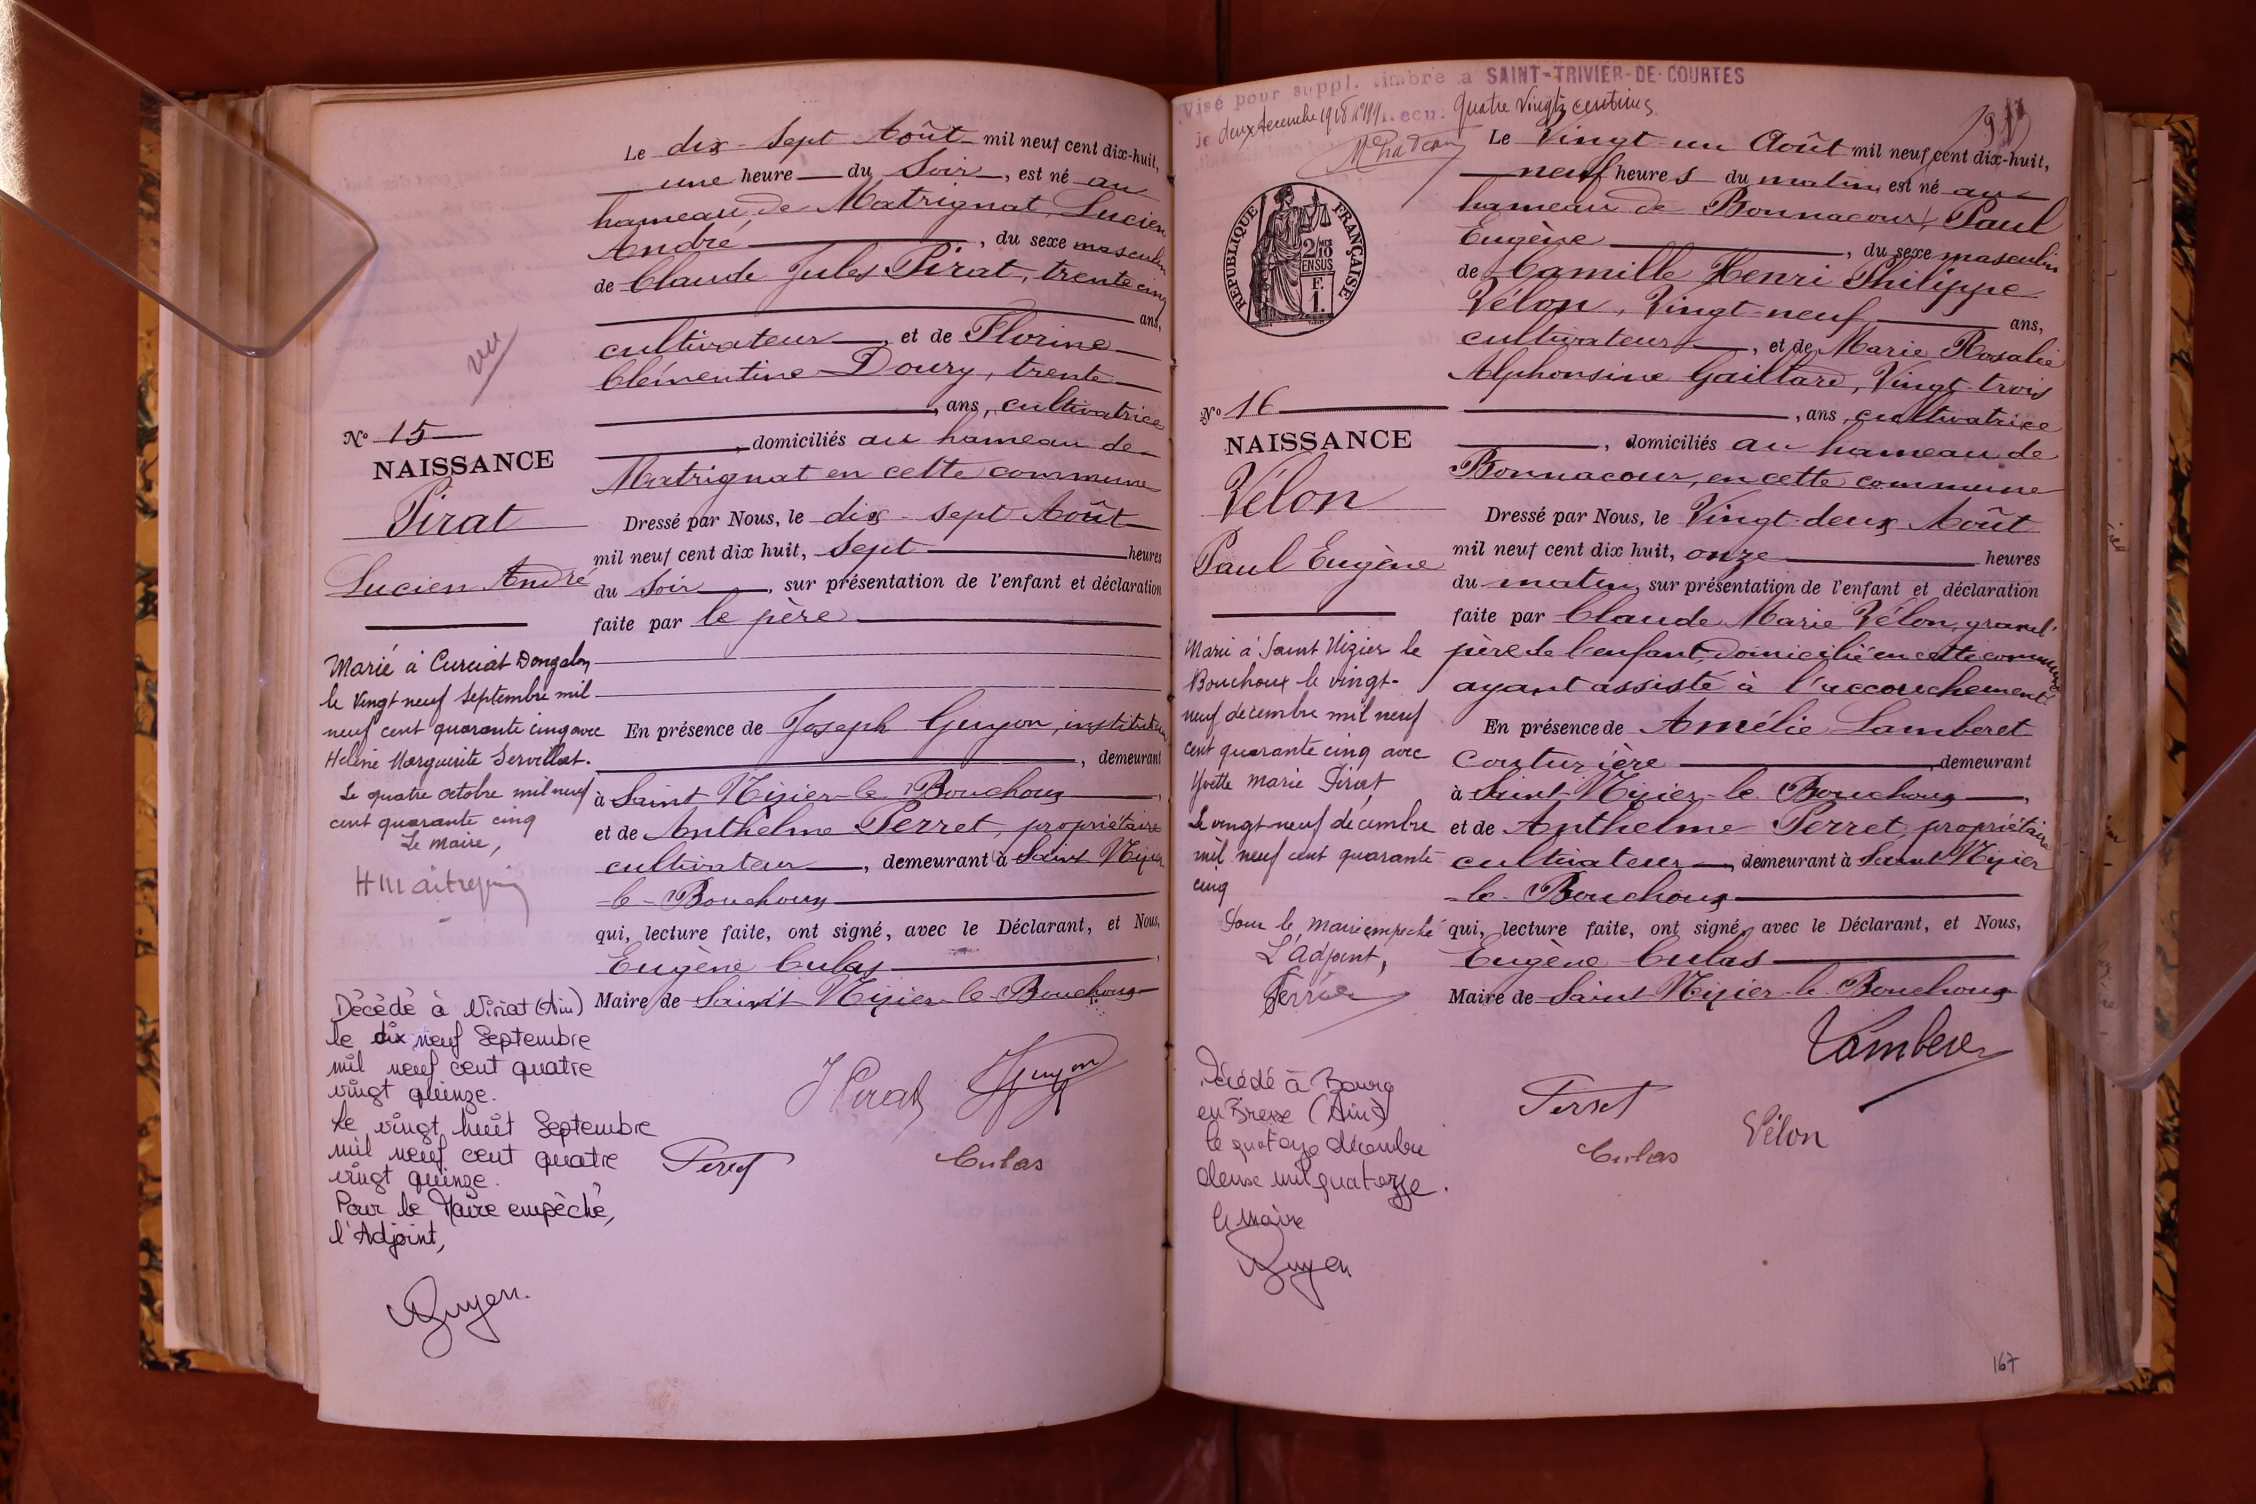 Le dix-sept Août mil neuf cent dix-huit,
une heure du Soir, est né au
hameau de Matrignat, Lucien
André, du sexe masculin
de Claude Jules Pirat, trente cinq
ans,
cultivateur, et de Florine
Clémentine Doury, trente
, ans, cultivatrice
, domiciliés au hameau de
Matrignat en cette commune
Dressé par Nous, le dix-sept Août
mil neuf cent dix huit, Sept heures
du Soir, sur présentation de l'enfant et déclaration
faite par le père
En présence de Joseph Guyon, instituteur
, demeurant
à Saint Nizier-le-Bouchoux,
et de Anthelme Perret, propriétaire
cultivateur, demeurant à Saint Nizier
-le-Bouchoux
qui, lecture faite, ont signé, avec le Déclarant, et Nous,
Eugène Culas,
Maire de Saint Nizier-le-Bouchoux
J Pirat Guyon
Perret Culas
vu
N° 15
NAISSANCE
Pirat
Lucien André
Marié à Curciat Dongalon
le vingt neuf septembre mil
neuf cent quarante cinq avec
Hélène Marguerite Servillat.
Le quatre octobre mil neuf
cent quarante cinq
Le maire,
Décédé à Viriat (Ain)
le dix neuf Septembre
mil neuf cent quatre
vingt quinze.
Le vingt huit Septembre
mil neuf cent quatre
vingt quinze.
Pour le Maire empêché,
l'Adjoint,
Guyon
Visé pour suppl. timbre à SAINT-TRIVIER-DE-COURTES
le deux décembre 1918 quatre Vingts centimes
RÉPUBLIQUE FRANÇAISE
2/10
EN SUS
F.
1.
Le Vingt-un Août mil neuf cent dix-huit,
neuf heures du matin, est né au
hameau de Bonnacour, Paul
Eugène, du sexe masculin
de Camille Henri Philippe
Vélon, Vingt-neuf ans,
cultivateur, et de Marie Rosalie
Alphonsine Gaillard, Vingt-trois
, ans, cultivatrice
, domiciliés au hameau de
Bonnacour, en cette commune
Dressé par Nous, le Vingt-deux Août
mil neuf cent dix huit, onze heures
du matin, sur présentation de l'enfant et déclaration
faite par Claude Marie Vélon, grand-
père de l'enfant, domicilié en cette commune
ayant assisté à l'accouchement
En présence de Amélie Lamberet
Couturière, demeurant
à Saint-Nizier-le-Bouchoux,
et de Anthelme Perret, propriétaire
cultivateur, demeurant à Saint Nizier
-le-Bouchoux
qui, lecture faite, ont signé, avec le Déclarant, et Nous,
Eugène Culas
Maire de Saint-Nizier-le-Bouchoux
Lamberet
Perret
Culas Vélon
N° 16
NAISSANCE
Vélon
Paul Eugène
Marié à Saint Nizier le
Bouchoux le vingt-
neuf décembre mil neuf
cent quarante cinq avec
Yvette Marie Pirat
Le vingt neuf décembre
mil neuf cent quarante
cinq
Pour le maire empêché
L'adjoint,
Décédé à Bourg
en Bresse (Ain)
le quatorze décembre
deux mil quatorze.
Le Maire
Guyon
167